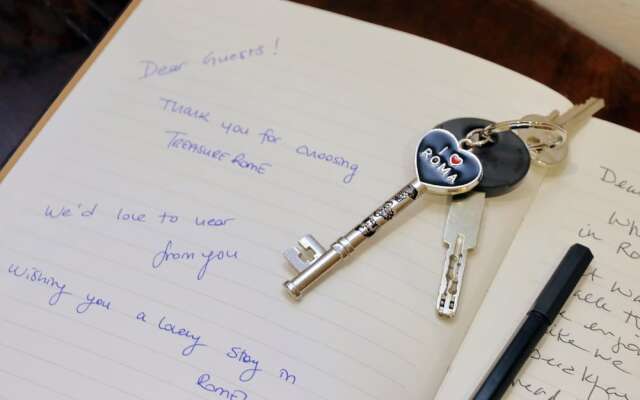 Dear Guests!
Thank you for choosing
TREASUREROME
We'd love to hear
from you
Wishing you a lovely stay in
ROME
I
ROMA
Dea
Wh
in Ro
A w
enjo
like we